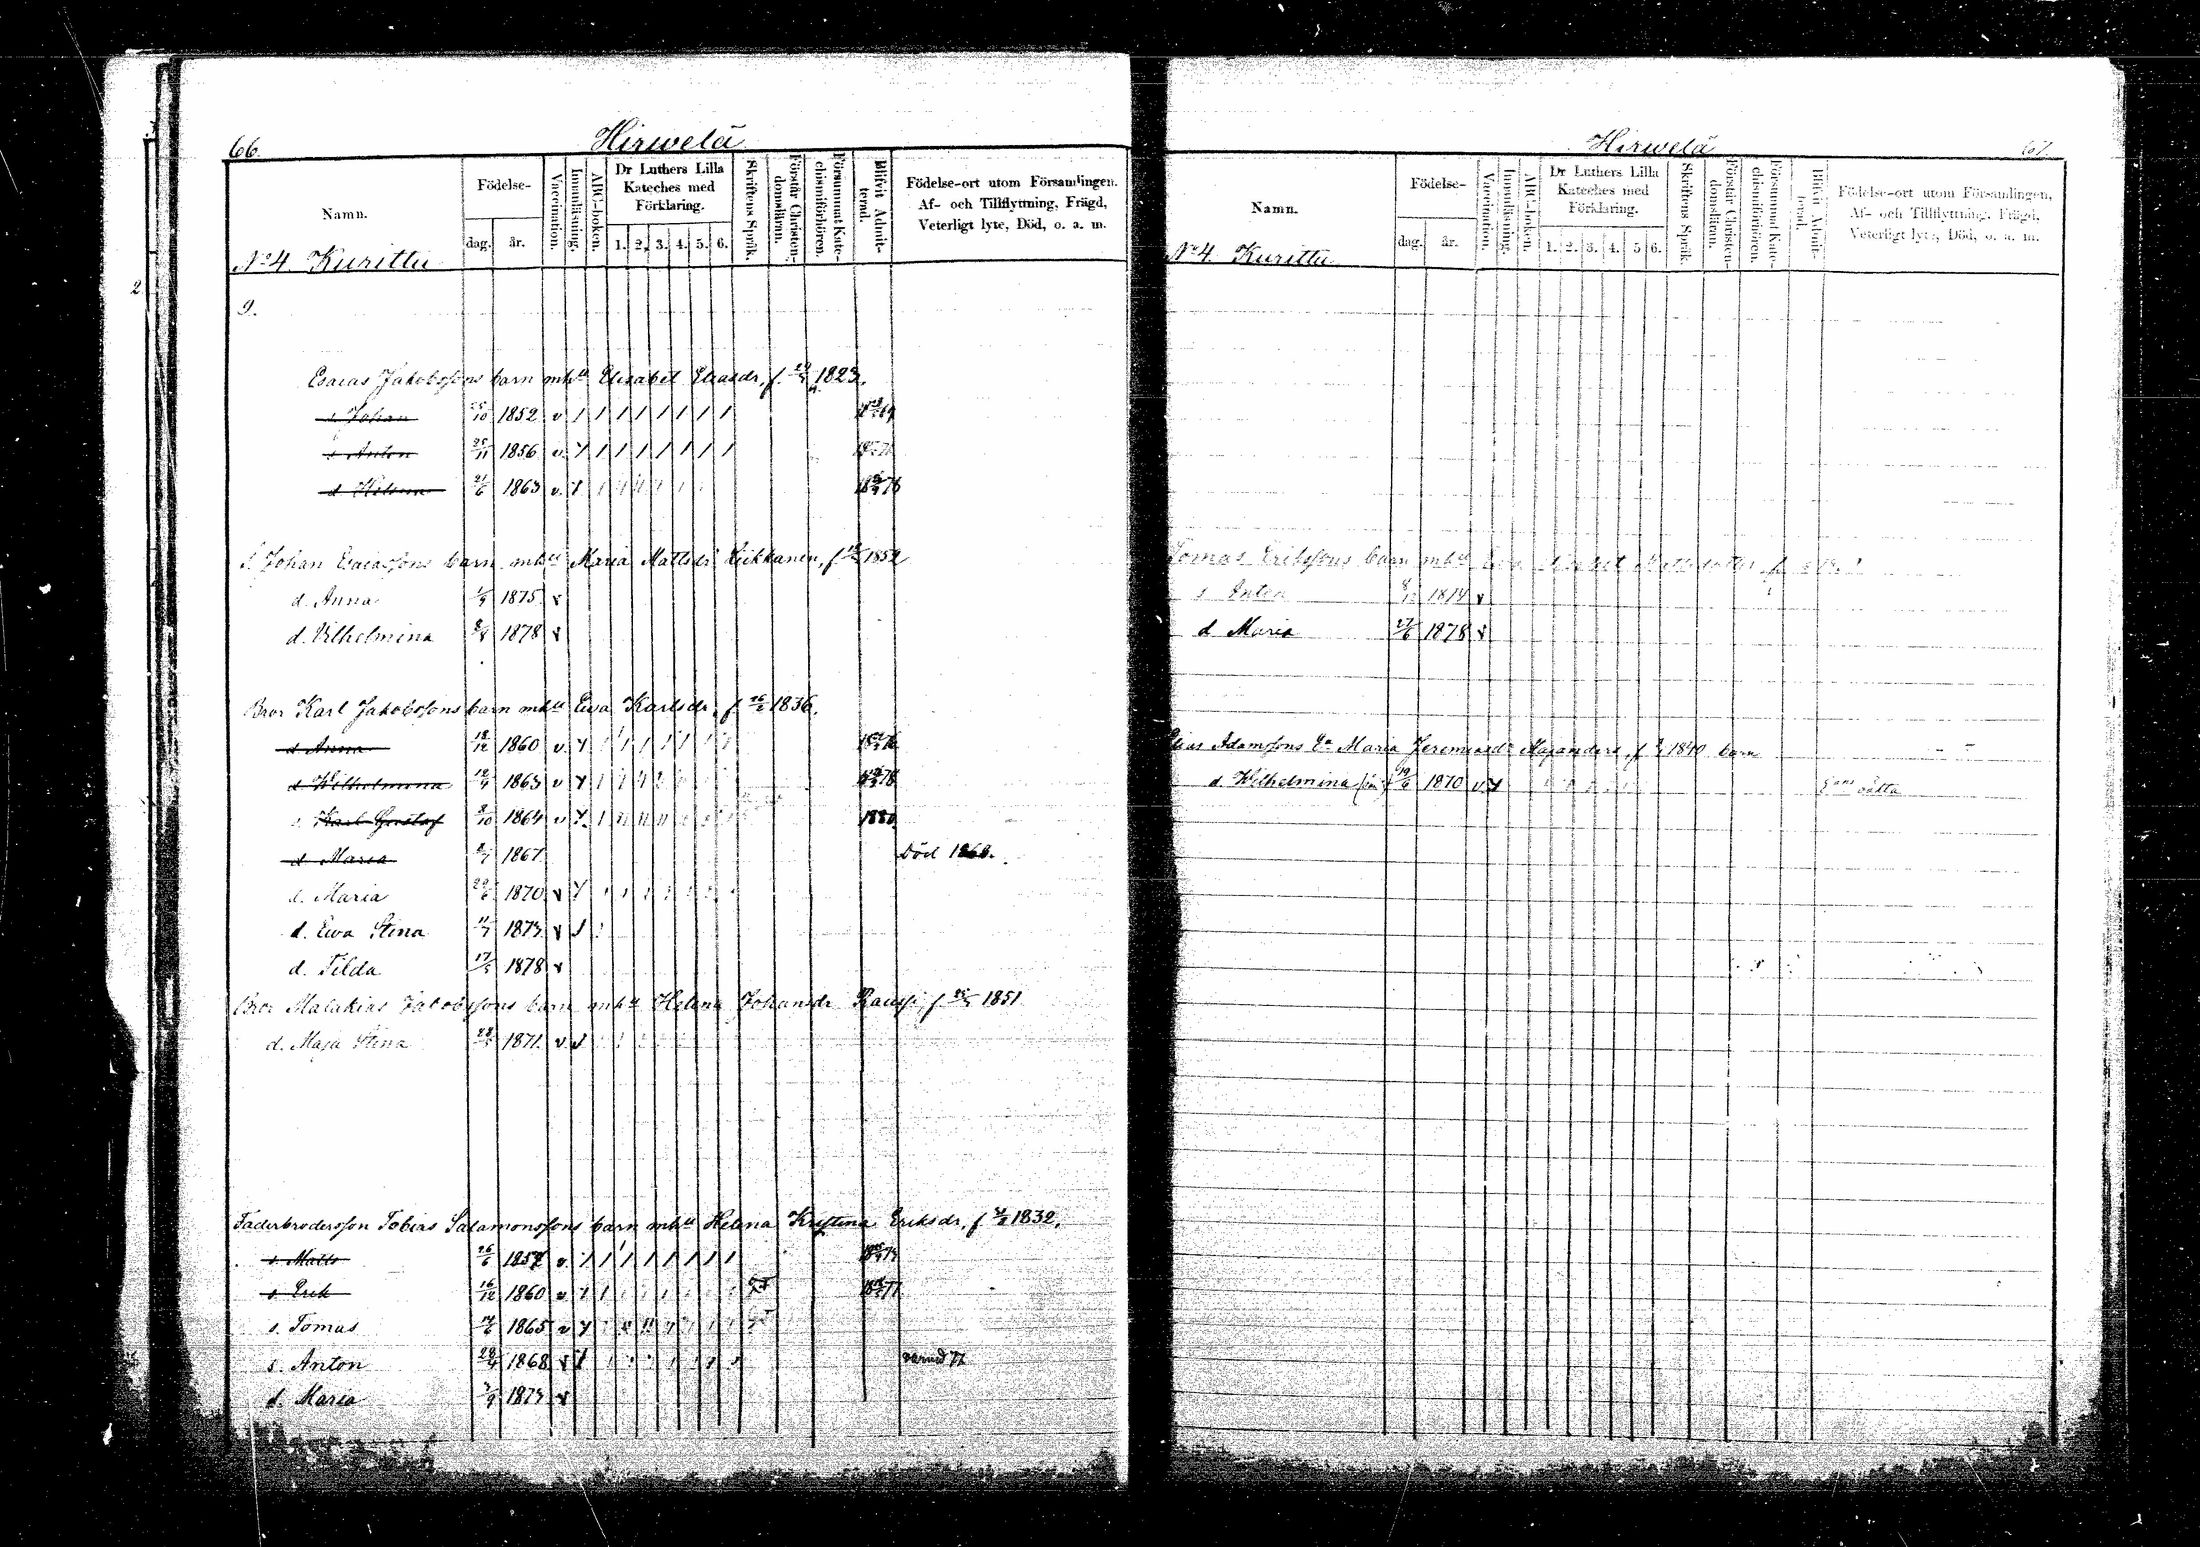 66.
Hirwelä
Namn.
Födelse-
dag.
år.
Vaccination.
Innanläsning.
ABC-boken.
Dr Luthers Lilla
Kateches med
Förklaring.
1. 2. 3. 4. 5. 6.
Skriftens Språk.
Förstår Christen-
domsläran.
Försummat Kate-
chismiförhören.
Blifvit Admit-
terad.
Födelse-ort utom Församlingen.
Af- och Tillflyttning, Frägd,
Veterligt lyte, Död, o. a. m.
No 4 Kurittu
9.
Esaias Jakobssons barn mhu Elisabet Eliasdr, f. 1823.
s Johan 25/10 1852 v
s Anton 25/11 1856 v.
d 21/6 1863 v.
s. Johan Esaiassons barn mhu Maria Mattsdr Liikkanen, f. 1852
d. Anna 1/9 1875 v
d. Vilhelmina 1878 v
Bror Karl Jakobssons barn mhu Ewa Karlsdr, f 26/2 1836.
d Anna 18/12 1860 v.
d Wilhelmina 12/4 1863 v
s Karl Gustaf 8/10 1864 v 1880
d Maria 1867 Död 1868.
d. Maria 1870 v
d. Ewa Stina 1873 v
d. Tilda 17/5 1878 v
Bror Malakias Jakobssons barn mhu Helena Johansdr f 1851
d. Maja Stina 1871. v.
Faderbrodersson Tobias Salamonssons barn mhu Helena Kristina Eriksdr, f 1832.
s. Matts 26/6 1857 v.
s Erik 16/12 1860 v
s. Tomas 1865 v
s. Anton 28/4 1868 v
d. Maria 1873 v
Hirwelä
67.
Namn.
Födelse-
dag.
år.
Vaccination.
Innanläsning.
ABC-boken.
Dr Luthers Lilla
Kateches med
Förklaring.
1. 2. 3. 4. 5 6.
Skriftens Språk.
Förstår Christen-
domsläran.
Försummat Kate-
chismiförhören.
Blifvit Admit-
terad.
Födelse-ort utom Församlingen,
Af- och Tillflyttning, Frägd,
Veterligt lyte, Död, o. a. m.
No 4 Kurittu
Tomas Erikssons barn mhu Ewa
s Anton 1874 v
d Maria 27/6 1878 v
Elias Adamssons Ea Maria Jeremiasdr f 1840 barn
d. Wilhelmina 19/6 1870 v